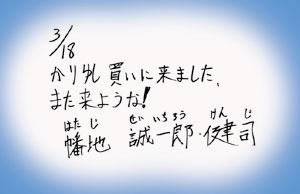 3/18
かりゆし買いに来ました、
また来ような!
はたじ せいいちろう けんじ
幡地 誠一郎・健司